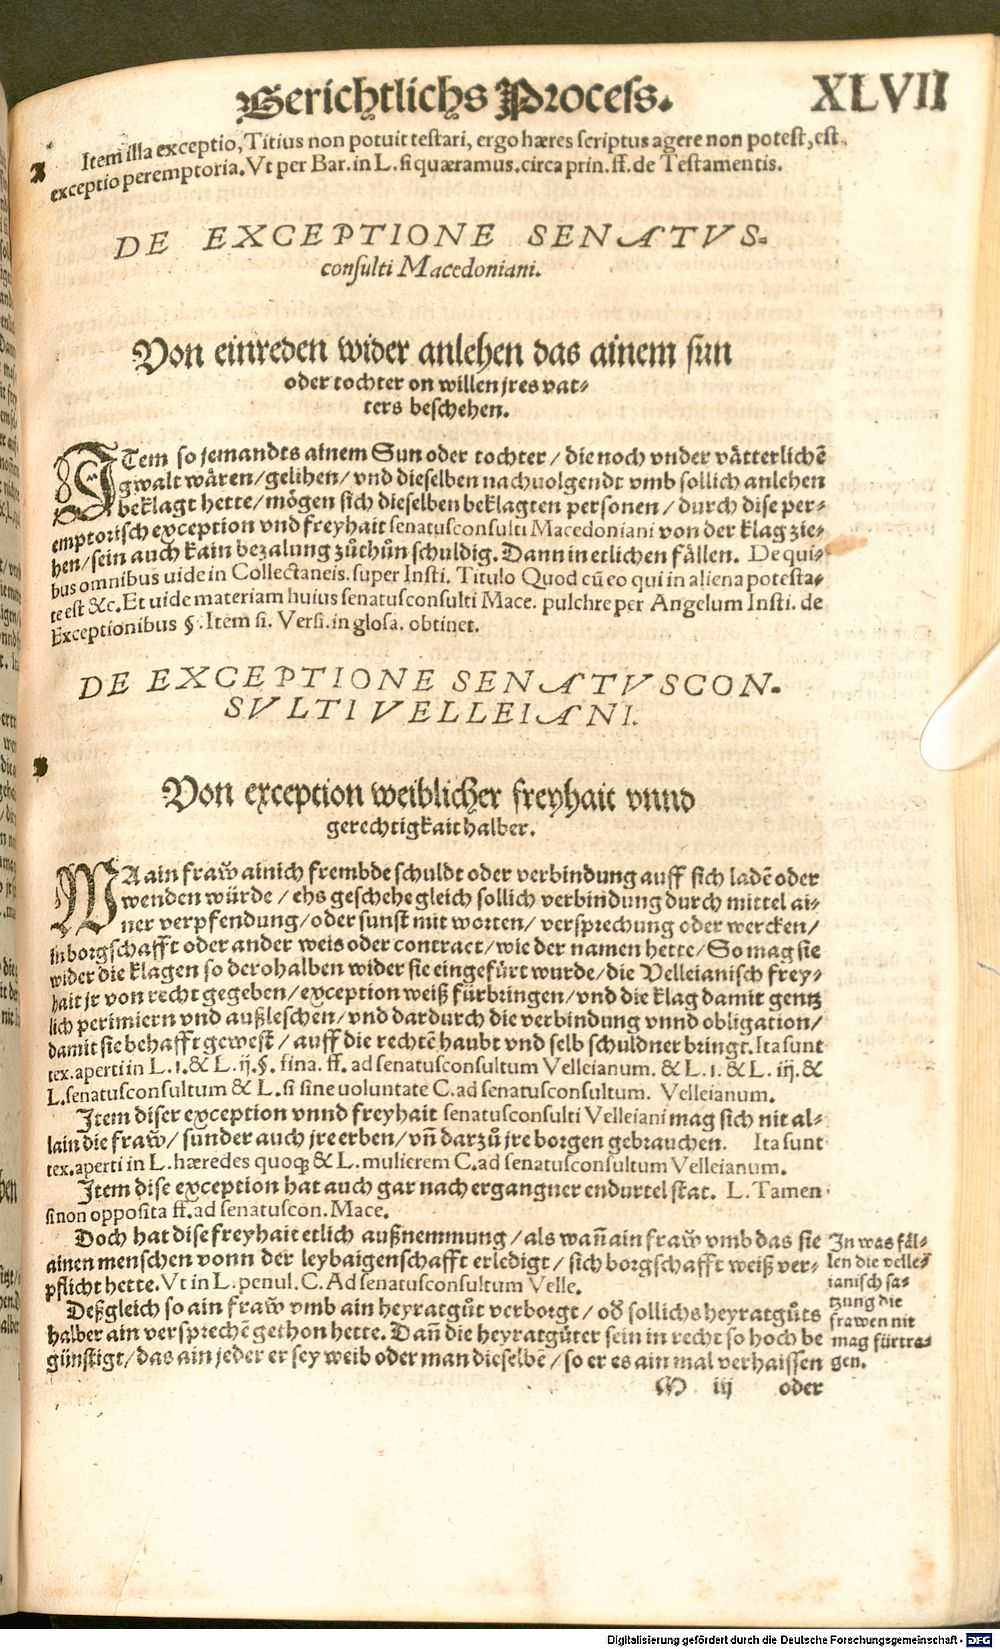 Gerichtlichs Process. XLVII
Item illa exceptio, Titius non potuit testari, ergo hæres scriptus agere non potest, est
exceptio peremptoria. Vt per Bar. in L. si quæramus. circa prin. ff. de Testamentis.
DE EXCEPTIONE SENATVS-
consulti Macedoniani.
Von einreden wider anlehen das ainem sun
oder tochter on willen jres vat-
ters beschehen.
ITem so jemandts ainem Sun oder tochter / die noch vnder vätterlichẽ
gwalt wären / gelihen / vnd dieselben nachuolgendt vmb sollich anlehen
beklagt hette / mögen sich dieselben beklagten personen / durch dise per-
emptorisch exception vnd freyhait senatusconsulti Macedoniani von der klag zie-
hen / sein auch kain bezalung zůthůn schuldig. Dann in etlichen fällen. De qui-
bus omnibus uide in Collectaneis. super Insti. Titulo Quod cũ eo qui in aliena potesta-
te est &c. Et uide materiam huius senatusconsulti Mace. pulchre per Angelum Insti. de
Exceptionibus §. Item si. Versi. in glosa. obtinet.
DE EXCEPTIONE SENATVSCON-
SVLTI VELLEIANI.
Von exception weiblicher freyhait vnnd
gerechtigkait halber.
WA ain fraw̃ ainich frembde schuldt oder verbindung auff sich ladẽ oder
wenden würde / ehs geschehe gleich sollich verbindung durch mittel ai-
ner verpfendung / oder sunst mit worten / versprechung oder wercken /
in borgschafft oder ander weis oder contract / wie der namen hette / So mag sie
wider die klagen so derohalben wider sie eingefürt wurde / die Velleianisch frey-
hait jr von recht gegeben / exception weiß fürbringen / vnd die klag damit gentz
lich perimiern vnd außleschen / vnd dardurch die verbindung vnnd obligation /
damit sie behafft gewest / auff die rechtẽ haubt vnd selb schuldner bringt. Ita sunt
tex. aperti in L. 1. & L. ij. §. fina. ff. ad senatusconsultum Velleianum. & L. 1. & L. iij. &
L. senatusconsultum & L. si sine voluntate C. ad senatusconsultum. Velleianum.
Item diser exception vnnd freyhait senatusconsulti Velleiani mag sich nit al-
lain die fraw̃ / sunder auch jre erben / vñ darzů jre borgen gebrauchen. Ita sunt
tex. aperti in L. hæredes quoqꝫ & L. mulierem C. ad senatusconsultum Velleianum.
Item dise exception hat auch gar nach ergangner endurtel stat. L. Tamen
si non opposita ff. ad senatuscon. Mace.
Doch hat dise freyhait etlich außnemmung / als wañ ain fraw̃ vmb das sie
ainen menschen vonn der leybaigenschafft erledigt / sich borgschafft weiß ver-
pflicht hette. Vt in L. penul. C. Ad senatusconsultum Velle.
Deßgleich so ain fraw̃ vmb ain heyratgůt verborgt / oď sollichs heyratgůts
halber ain versprechẽ gethon hette. Dañ die heyratgüter sein in recht so hoch be
günstigt / das ain jeder er sey weib oder man dieselbẽ / so er es ain mal verhaissen
In was fäl-
len die velle-
ianisch sa-
tzung die
frawen nit
mag fürtra-
gen.
M iij oder
Digitalisierung gefördert durch die Deutsche Forschungsgemeinschaft - DFG